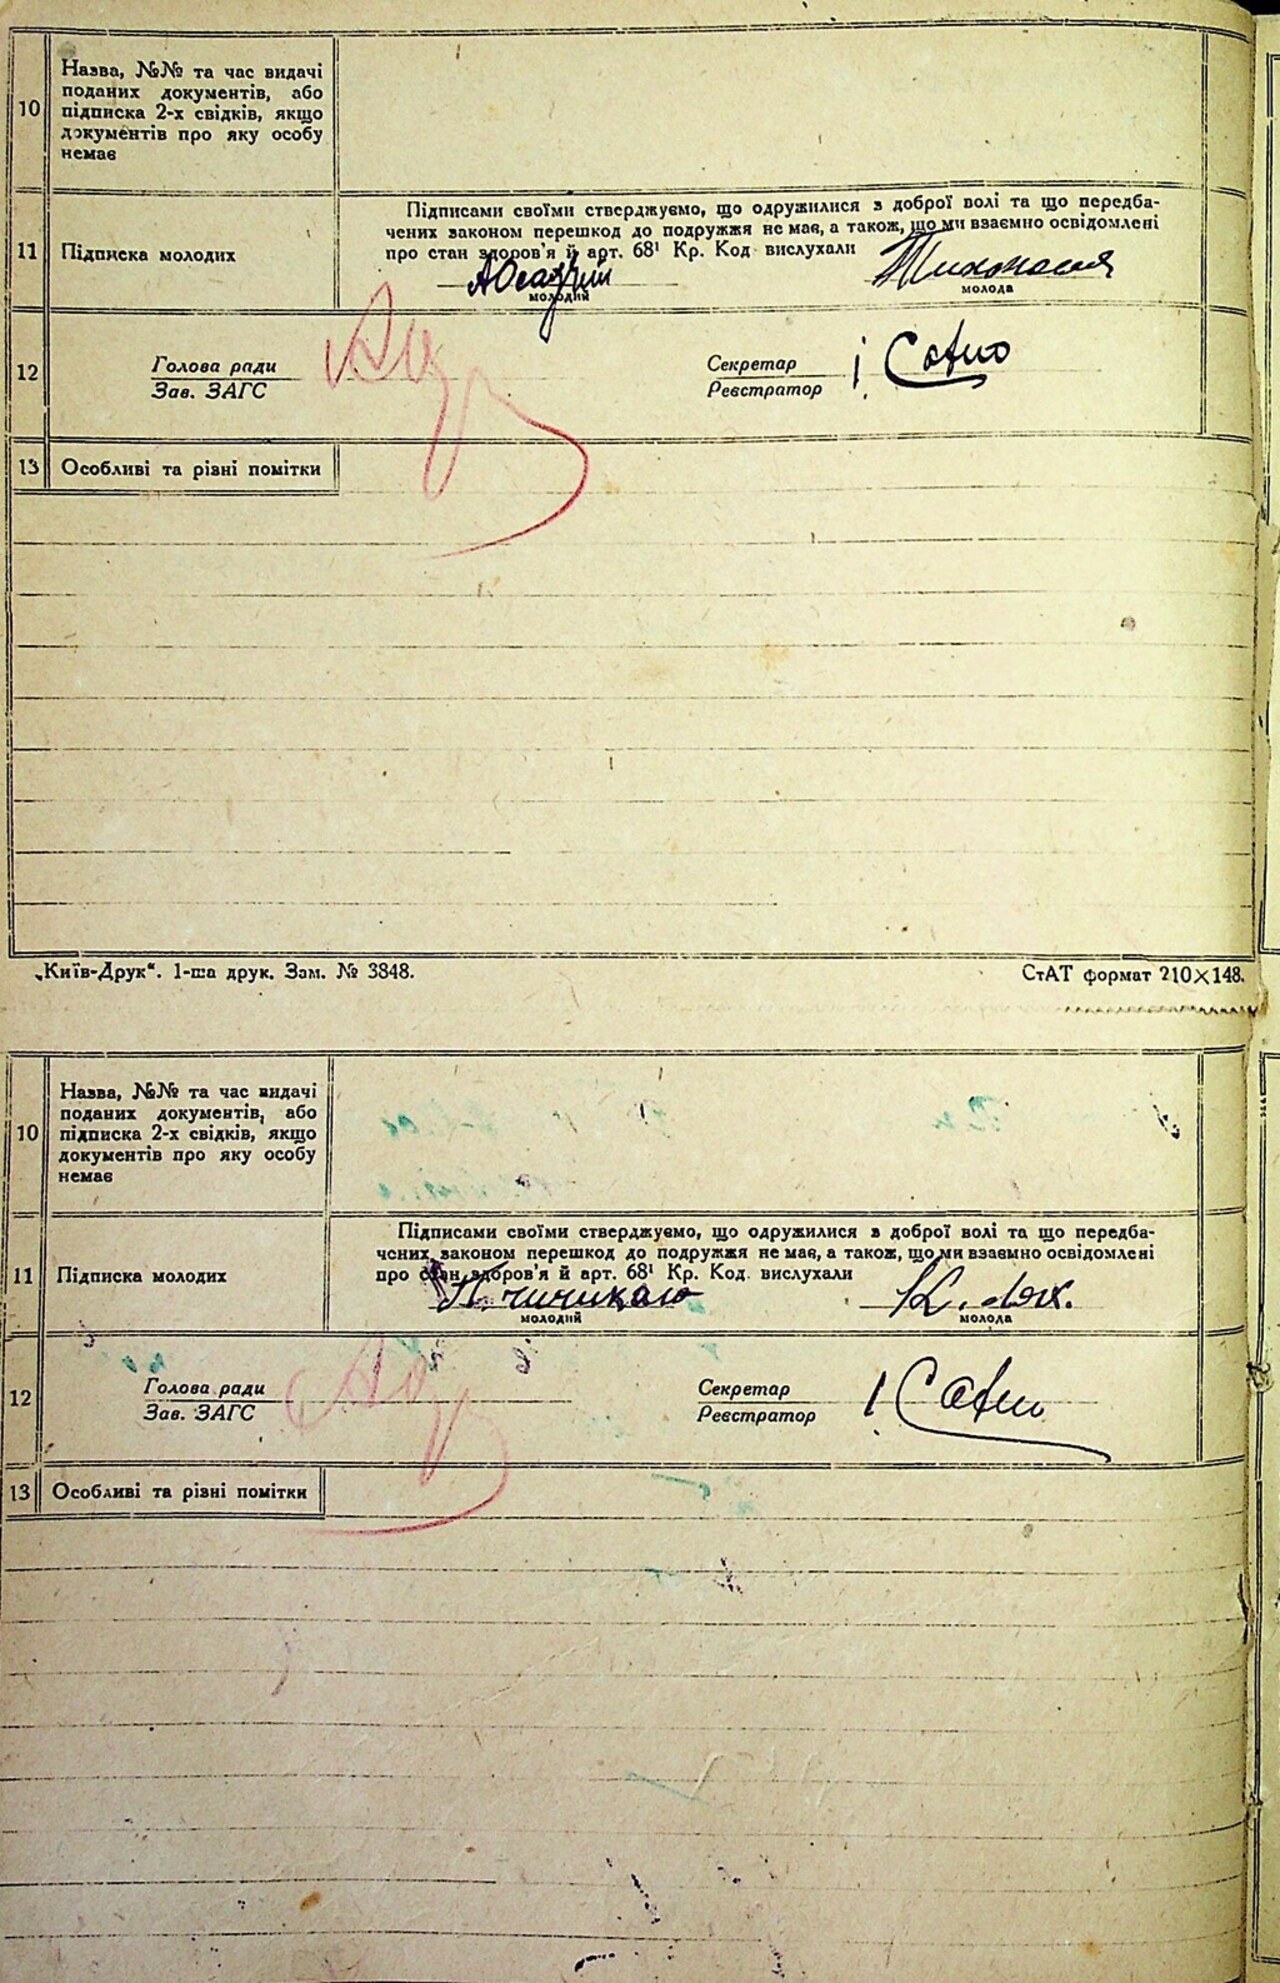 10
Назва, №№ та час видачі
поданих документів, або
підписка 2-х свідків, якщо
документів про яку особу
немає
11
Підписка молодих
Підписами своїми стверджуємо, що одружилися з доброї волі та що передба-
чених законом перешкод до подружжя не має, а також, що ми взаємно освідомлені
про стан здоров'я й арт. 68¹ Кр. Код вислухали
молодий
молода
12
Голова ради
Зав. ЗАГС
Секретар
Реєстратор
13
Особливі та різні помітки
„Київ-Друк“. 1-ша друк. Зам. № 3848.
СтАТ формат 210×148.
10
Назва, №№ та час видачі
поданих документів, або
підписка 2-х свідків, якщо
документів про яку особу
немає
11
Підписка молодих
Підписами своїми стверджуємо, що одружилися з доброї волі та що передба-
чених законом перешкод до подружжя не має, а також, що ми взаємно освідомлені
про стан здоров'я й арт. 68¹ Кр. Код. вислухали
молодий
молода
12
Голова ради
Зав. ЗАГС
Секретар
Реєстратор
13
Особливі та різні помітки